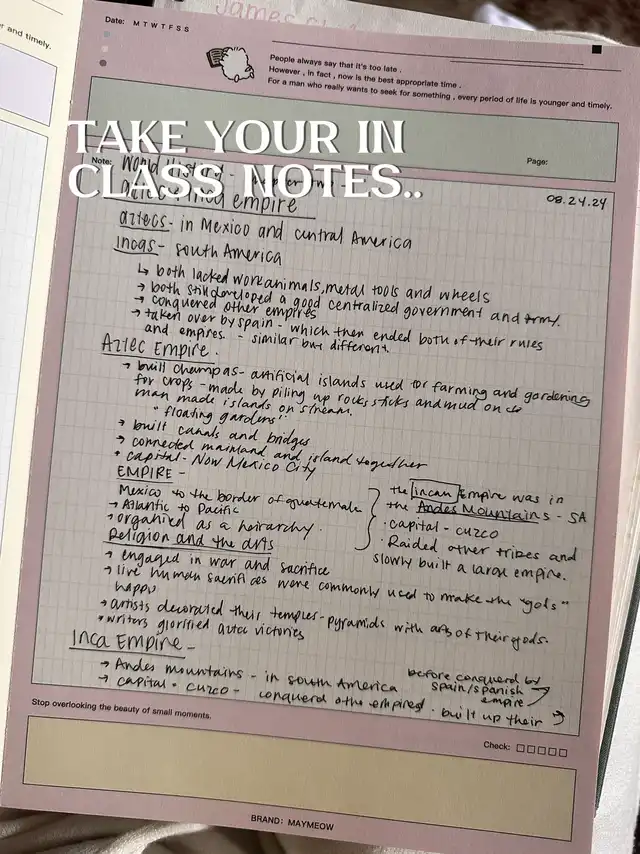 James
r and timely.
Date: M T W T F S S
People always say that it's too late .
However , in fact , now is the best appropriate time .
For a man who really wants to seek for something , every period of life is younger and timely.
TAKE YOUR IN
CLASS NOTES..
Note:
Page:
World History -
empire
08.24.24
aztecs - in Mexico and central America
Incas - south America
↳ both lacked work animals, metal tools and wheels
→ both still developed a good centralized government and army.
→ conquered other empires
→ taken over by spain - which then ended both of their rules
and empires. - similar but different.
Aztec Empire.
→ built champas - artificial islands used for farming and gardening
for crops - made by piling up rocks, sticks and mud on
man made islands on stream.
"floating gardens"
→ built canals and bridges
→ connected mainland and island together
• capital - Now Mexico City
EMPIRE -
Mexico to the border of guatemala
→ Atlantic to Pacific
→ organized as a heirarchy.
the incan Empire was in
the Andes Mountains - SA
• capital - cuzco
• Raided other tribes and
slowly built a large empire.
Religion and the arts
→ engaged in war and sacrifice
→ live human sacrifices were commonly used to make the "gods"
happy
→ artists decorated their temples - pyramids with arts of their gods.
• writers glorified aztec victories
Inca Empire -
→ Andes mountains - in south America
→ capital - cuzco - conquerd othe empires. built up their
before conquerd by
spain/spanish
empire
Stop overlooking the beauty of small moments.
Check:
BRAND: MAYMEOW